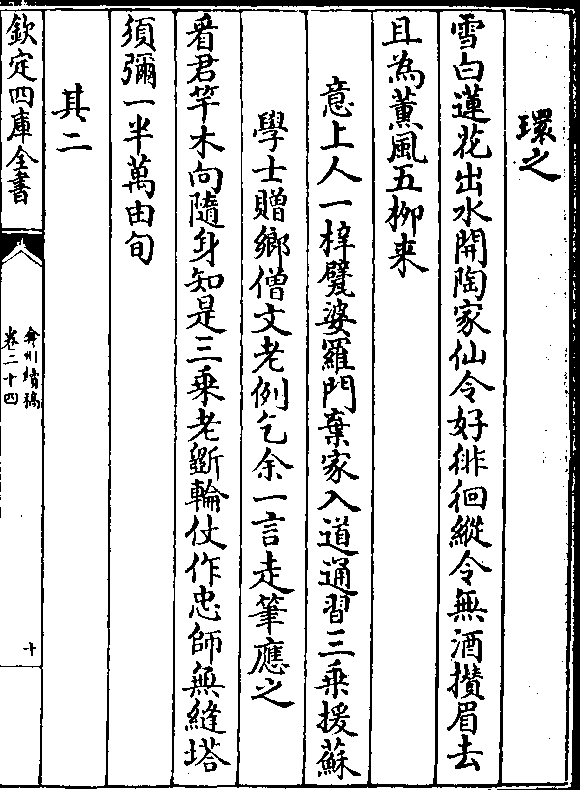 環之
雪白蓮花出水開陶家仙令好徘徊縱令無酒攢眉去
且為薰風五柳来
意上人一梓甓婆羅門棄家入道通習三乗援蘇
學士贈鄉僧文老例乞余一言走筆應之
看君竿木向隨身知是三乗老斲輪仗作忠師無縫塔
須彌一半萬由旬
其二
欽定四庫全書
弇州續稿
卷二十四
十